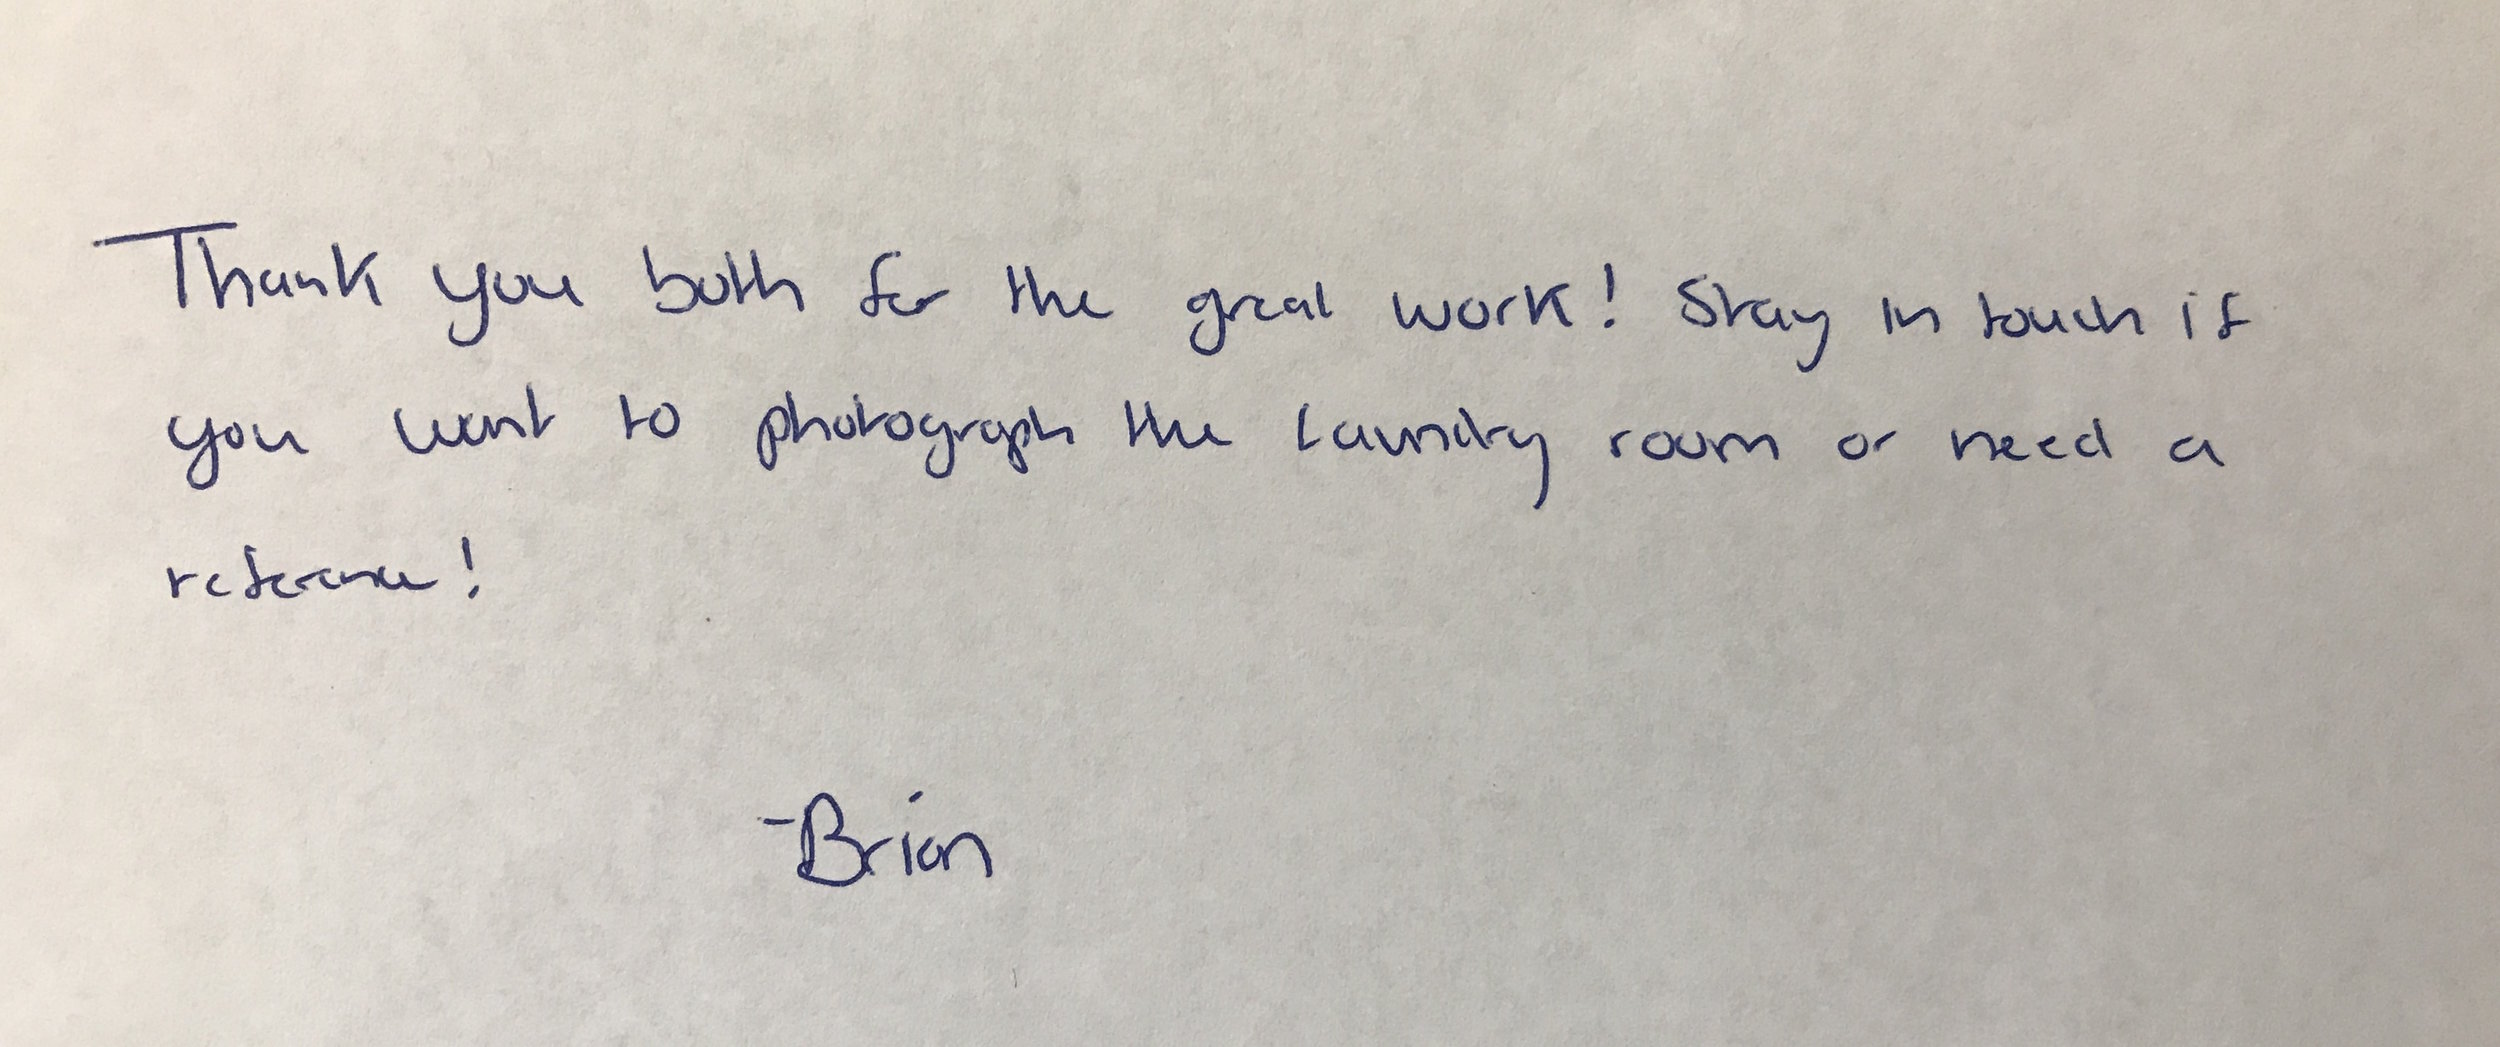 Thank you both for the great work! Stay in touch if
you want to photograph the laundry room or need a
reference!
-Brian